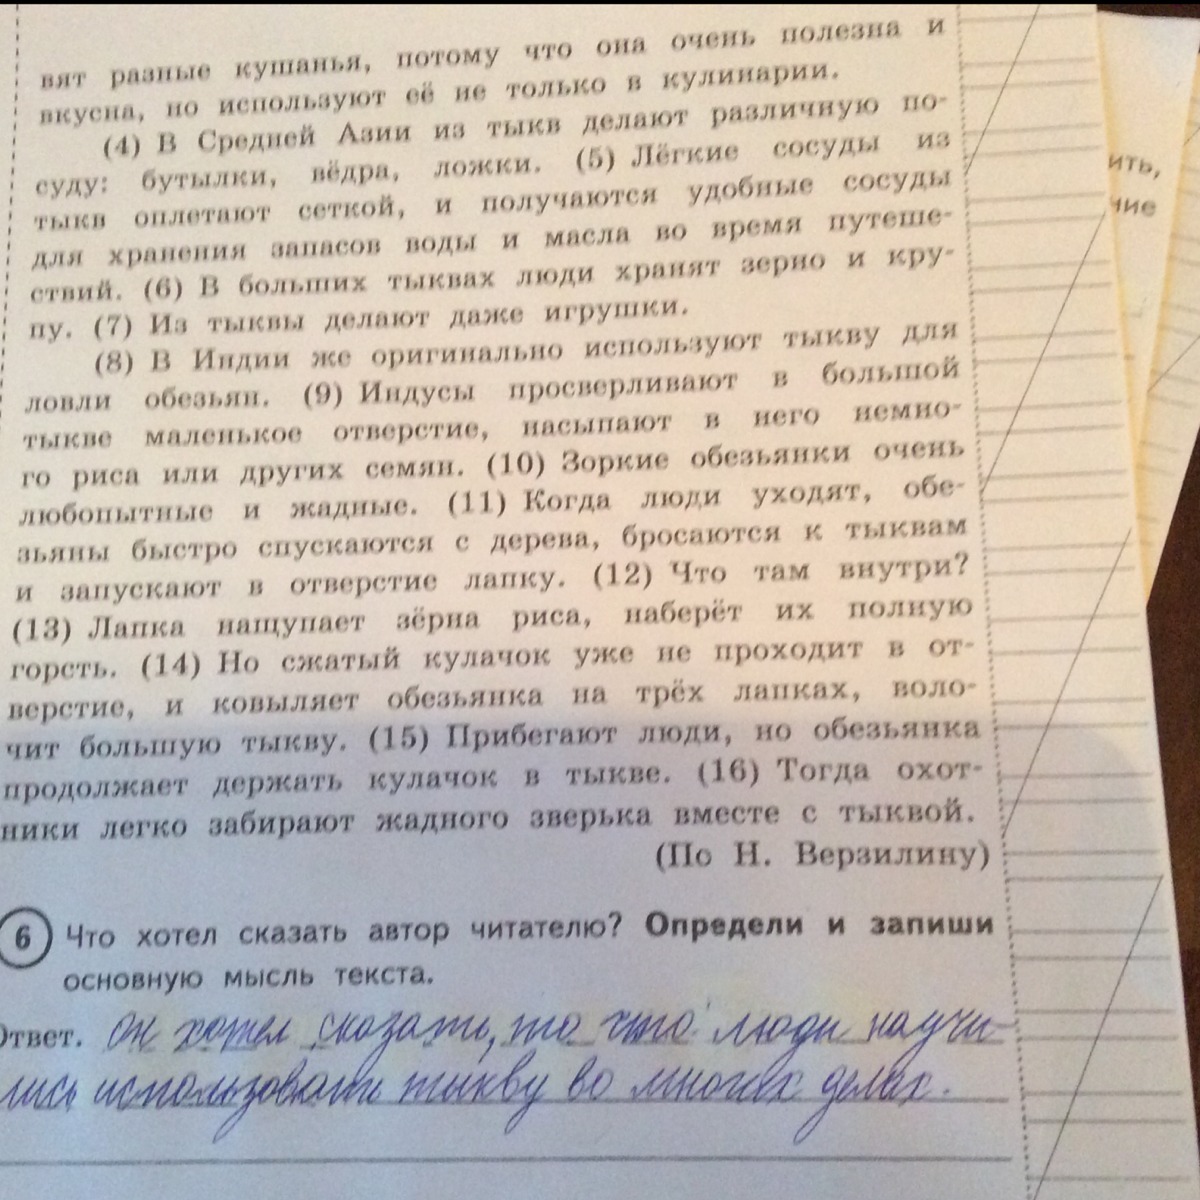 вят разные кушанья, потому что она очень полезна и
вкусна, но используют её не только в кулинарии.
(4) В Средней Азии из тыкв делают различную по-
суду: бутылки, вёдра, ложки. (5) Лёгкие сосуды из
тыкв оплетают сеткой, и получаются удобные сосуды
для хранения запасов воды и масла во время путеше-
ствий. (6) В больших тыквах люди хранят зерно и кру-
пу. (7) Из тыквы делают даже игрушки.
(8) В Индии же оригинально используют тыкву для
ловли обезьян. (9) Индусы просверливают в большой
тыкве маленькое отверстие, насыпают в него немно-
го риса или других семян. (10) Зоркие обезьянки очень
любопытные и жадные. (11) Когда люди уходят, обе-
зьяны быстро спускаются с дерева, бросаются к тыквам
и запускают в отверстие лапку. (12) Что там внутри?
(13) Лапка нащупает зёрна риса, наберёт их полную
горсть. (14) Но сжатый кулачок уже не проходит в от-
верстие, и ковыляет обезьянка на трёх лапках, воло-
чит большую тыкву. (15) Прибегают люди, но обезьянка
продолжает держать кулачок в тыкве. (16) Тогда охот-
ники легко забирают жадного зверька вместе с тыквой.
(По Н. Верзилину)
6 Что хотел сказать автор читателю? Определи и запиши
основную мысль текста.
Ответ. Он хотел сказать, то что люди научи-
лись использовать тыкву во многих делах.
ить,
ние